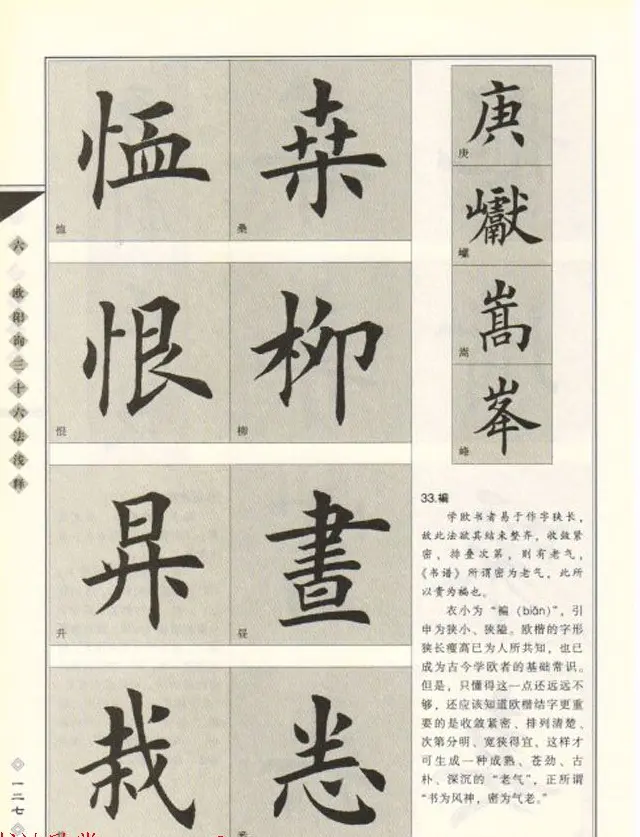 六
欧阳询三十六法浅释
一二七
恤
恤
桑
桑
恨
恨
柳
柳
昇
升
晝
昼
栽
恙
庚
庚
巘
巘
嵩
嵩
峯
峰
33.褊
学欧书者易于作字狭长，
故此法欲其结束整齐，收敛紧
密，排叠次第，则有老气，
《书谱》所谓密为老气，此所
以贵为褊也。
衣小为“褊（biǎn）”，引
申为狭小、狭隘。欧楷的字形
狭长瘦高已为人所共知，也已
成为古今学欧者的基础常识。
但是，只懂得这一点还远远不
够，还应该知道欧楷结字更重
要的是收敛紧密、排列清楚、
次第分明、宽狭得宜，这样才
可生成一种成熟、苍劲、古
朴、深沉的“老气”，正所谓
“书为风神，密为气老。”